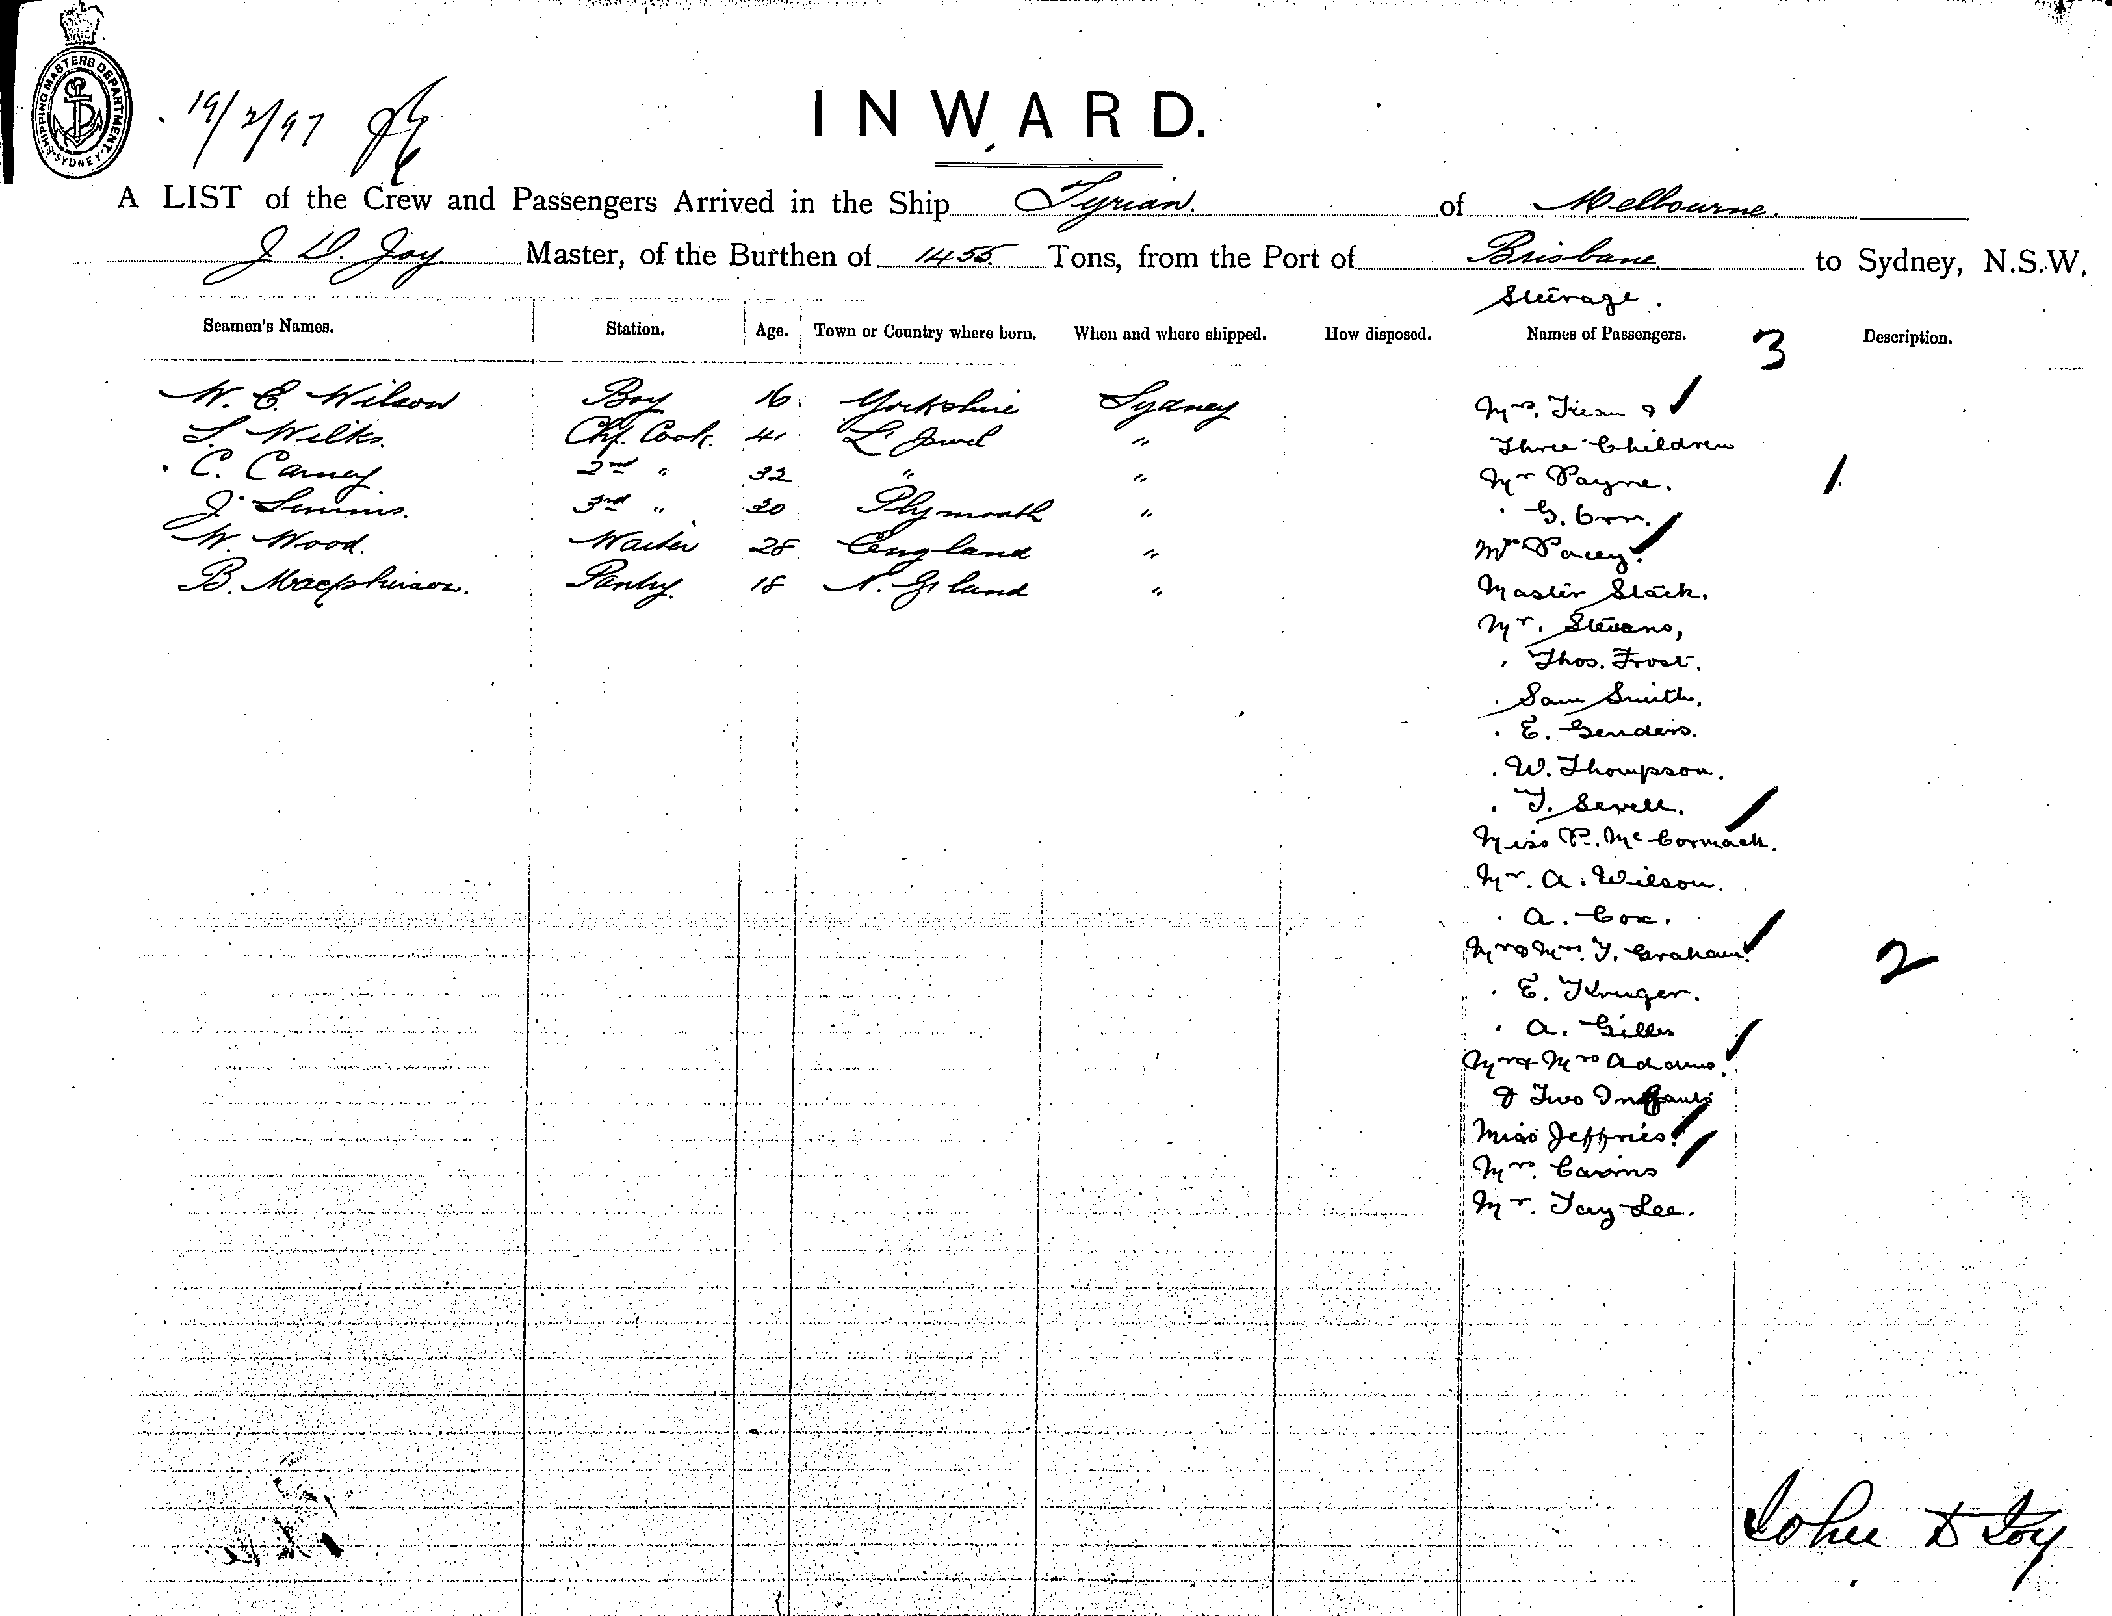 SHIPPING MASTERS DEPARTMENT. SYDNEY
19/2/97
INWARD.
A LIST of the Crew and Passengers Arrived in the Ship Tyrian. of Melbourne.
J. D. Joy Master, of the Burthen of 1455 Tons, from the Port of Brisbane to Sydney, N.S.W.
Steerage.
Seamen's Names. Station. Age. Town or Country where born. When and where shipped. How disposed. Names of Passengers. 3 Description.
W. E. Wilson Boy 16 Yorkshire Sydney Mrs. &
S. Wilks. Chf. Cook. 41 L'pool " Three Children
C. Carney. 2nd " 32 " " Mr Payne. 1
J. Simms. 3rd " 20 Plymouth " . G. Orr.
W. Wood. Waiter 28 England " Pacey.
B. Macpherson. Pantry. 18 " Master Slack.
Mr. Stevens,
. Thos. Frost.
. Sam Smith.
. E. Genders.
. W. Thompson.
. T. Sewell.
Miss P. McCormack.
Mr. A. Wilson.
. A. Cox.
Mr & Mrs. T. Graham. 2
. E. Kruger.
. A. Gilles
Mr & Mrs Adams.
& Two Infants
Miss Jeffries.
Mrs. Cairns
Mr. Tay Lee.
John D Joy